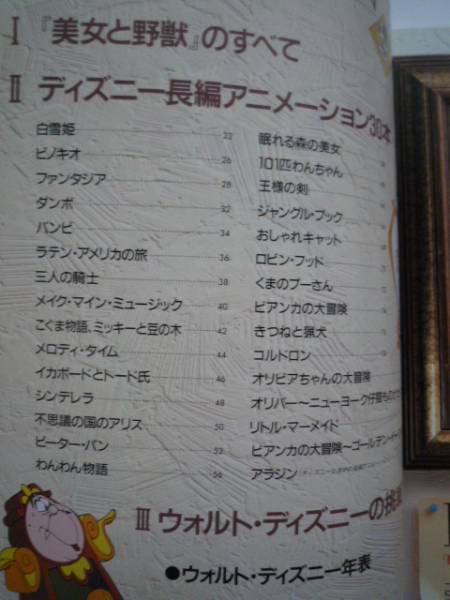 I 『美女と野獣』のすべて
II ディズニー長編アニメーション30本
白雪姫 22
ピノキオ 26
ファンタジア 28
ダンボ 32
バンビ 34
ラテン・アメリカの旅 36
三人の騎士 38
メイク・マイン・ミュージック 40
こぐま物語、ミッキーと豆の木 42
メロディ・タイム 44
イカボードとトード氏 46
シンデレラ 48
不思議の国のアリス 50
ピーター・パン 53
わんわん物語 56
眠れる森の美女
101匹わんちゃん
王様の剣
ジャングル・ブック
おしゃれキャット
ロビン・フッド
くまのプーさん
ビアンカの大冒険
きつねと猟犬
コルドロン
オリビアちゃんの大冒険
オリバー〜ニューヨーク仔猫ものがた
リトル・マーメイド
ビアンカの大冒険〜ゴールデン・イー
アラジン
III ウォルト・ディズニーの挑戦
●ウォルト・ディズニー年表